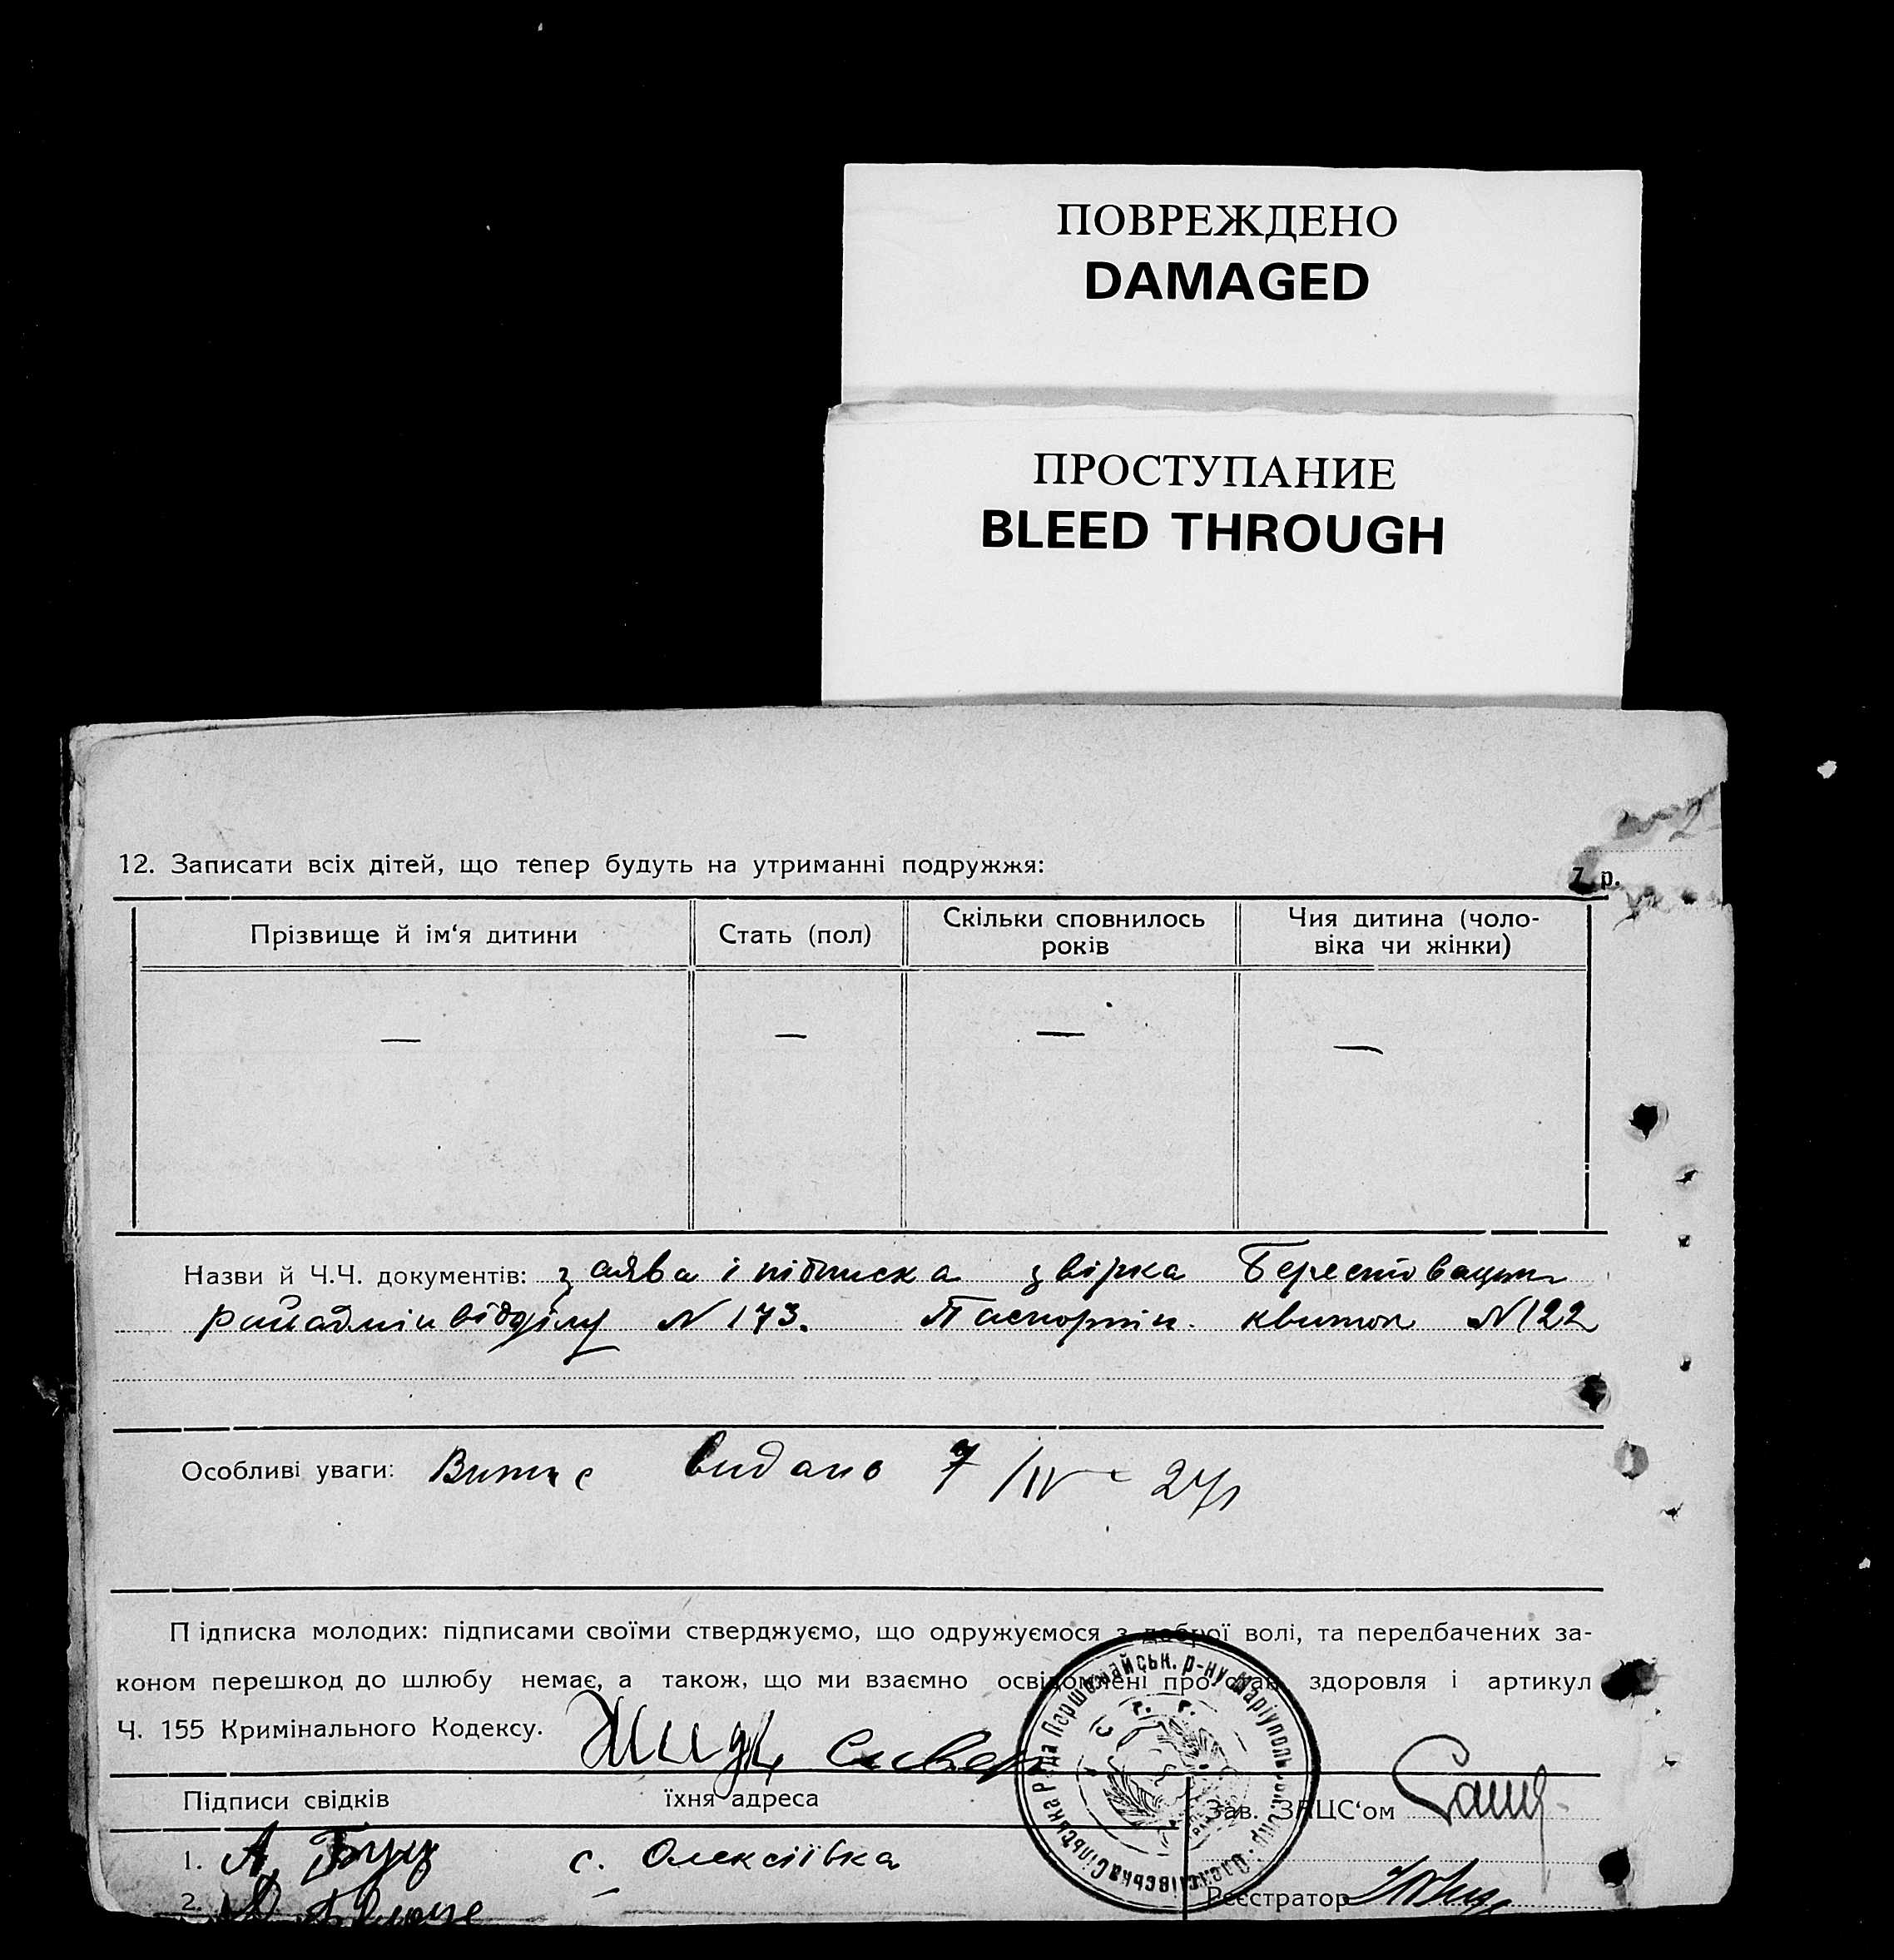 ПОВРЕЖДЕНО
DAMAGED
ПРОСТУПАНИЕ
BLEED THROUGH
12. Записати всіх дітей, що тепер будуть на утриманні подружжя:
7 р.
Прізвище й ім‘я дитини
Стать (пол)
Скільки сповнилось років
Чия дитина (чоло-
віка чи жінки)
— — — —
Назви й Ч.Ч. документів: заява і підписка звірка
райадмінвідділу N 173. Паспортн. квиток N 122
Особливі уваги: Витяг видано 7/IV - 27р
Підписка молодих: підписами своїми стверджуємо, що одружуємося з доброї волі, та передбачених за-
коном перешкод до шлюбу немає, а також, що ми взаємно освідомлені про стан здоровля і артикул
Ч. 155 Кримінального Кодексу.
Підписи свідків
їхня адреса
Зав. ЗАЦС‘ом
1. А. с. Олексіївка
2.
Реєстратор
Олексіївська Сільська Рада Першомайськ. р-ну Маріупольськ. Окр.